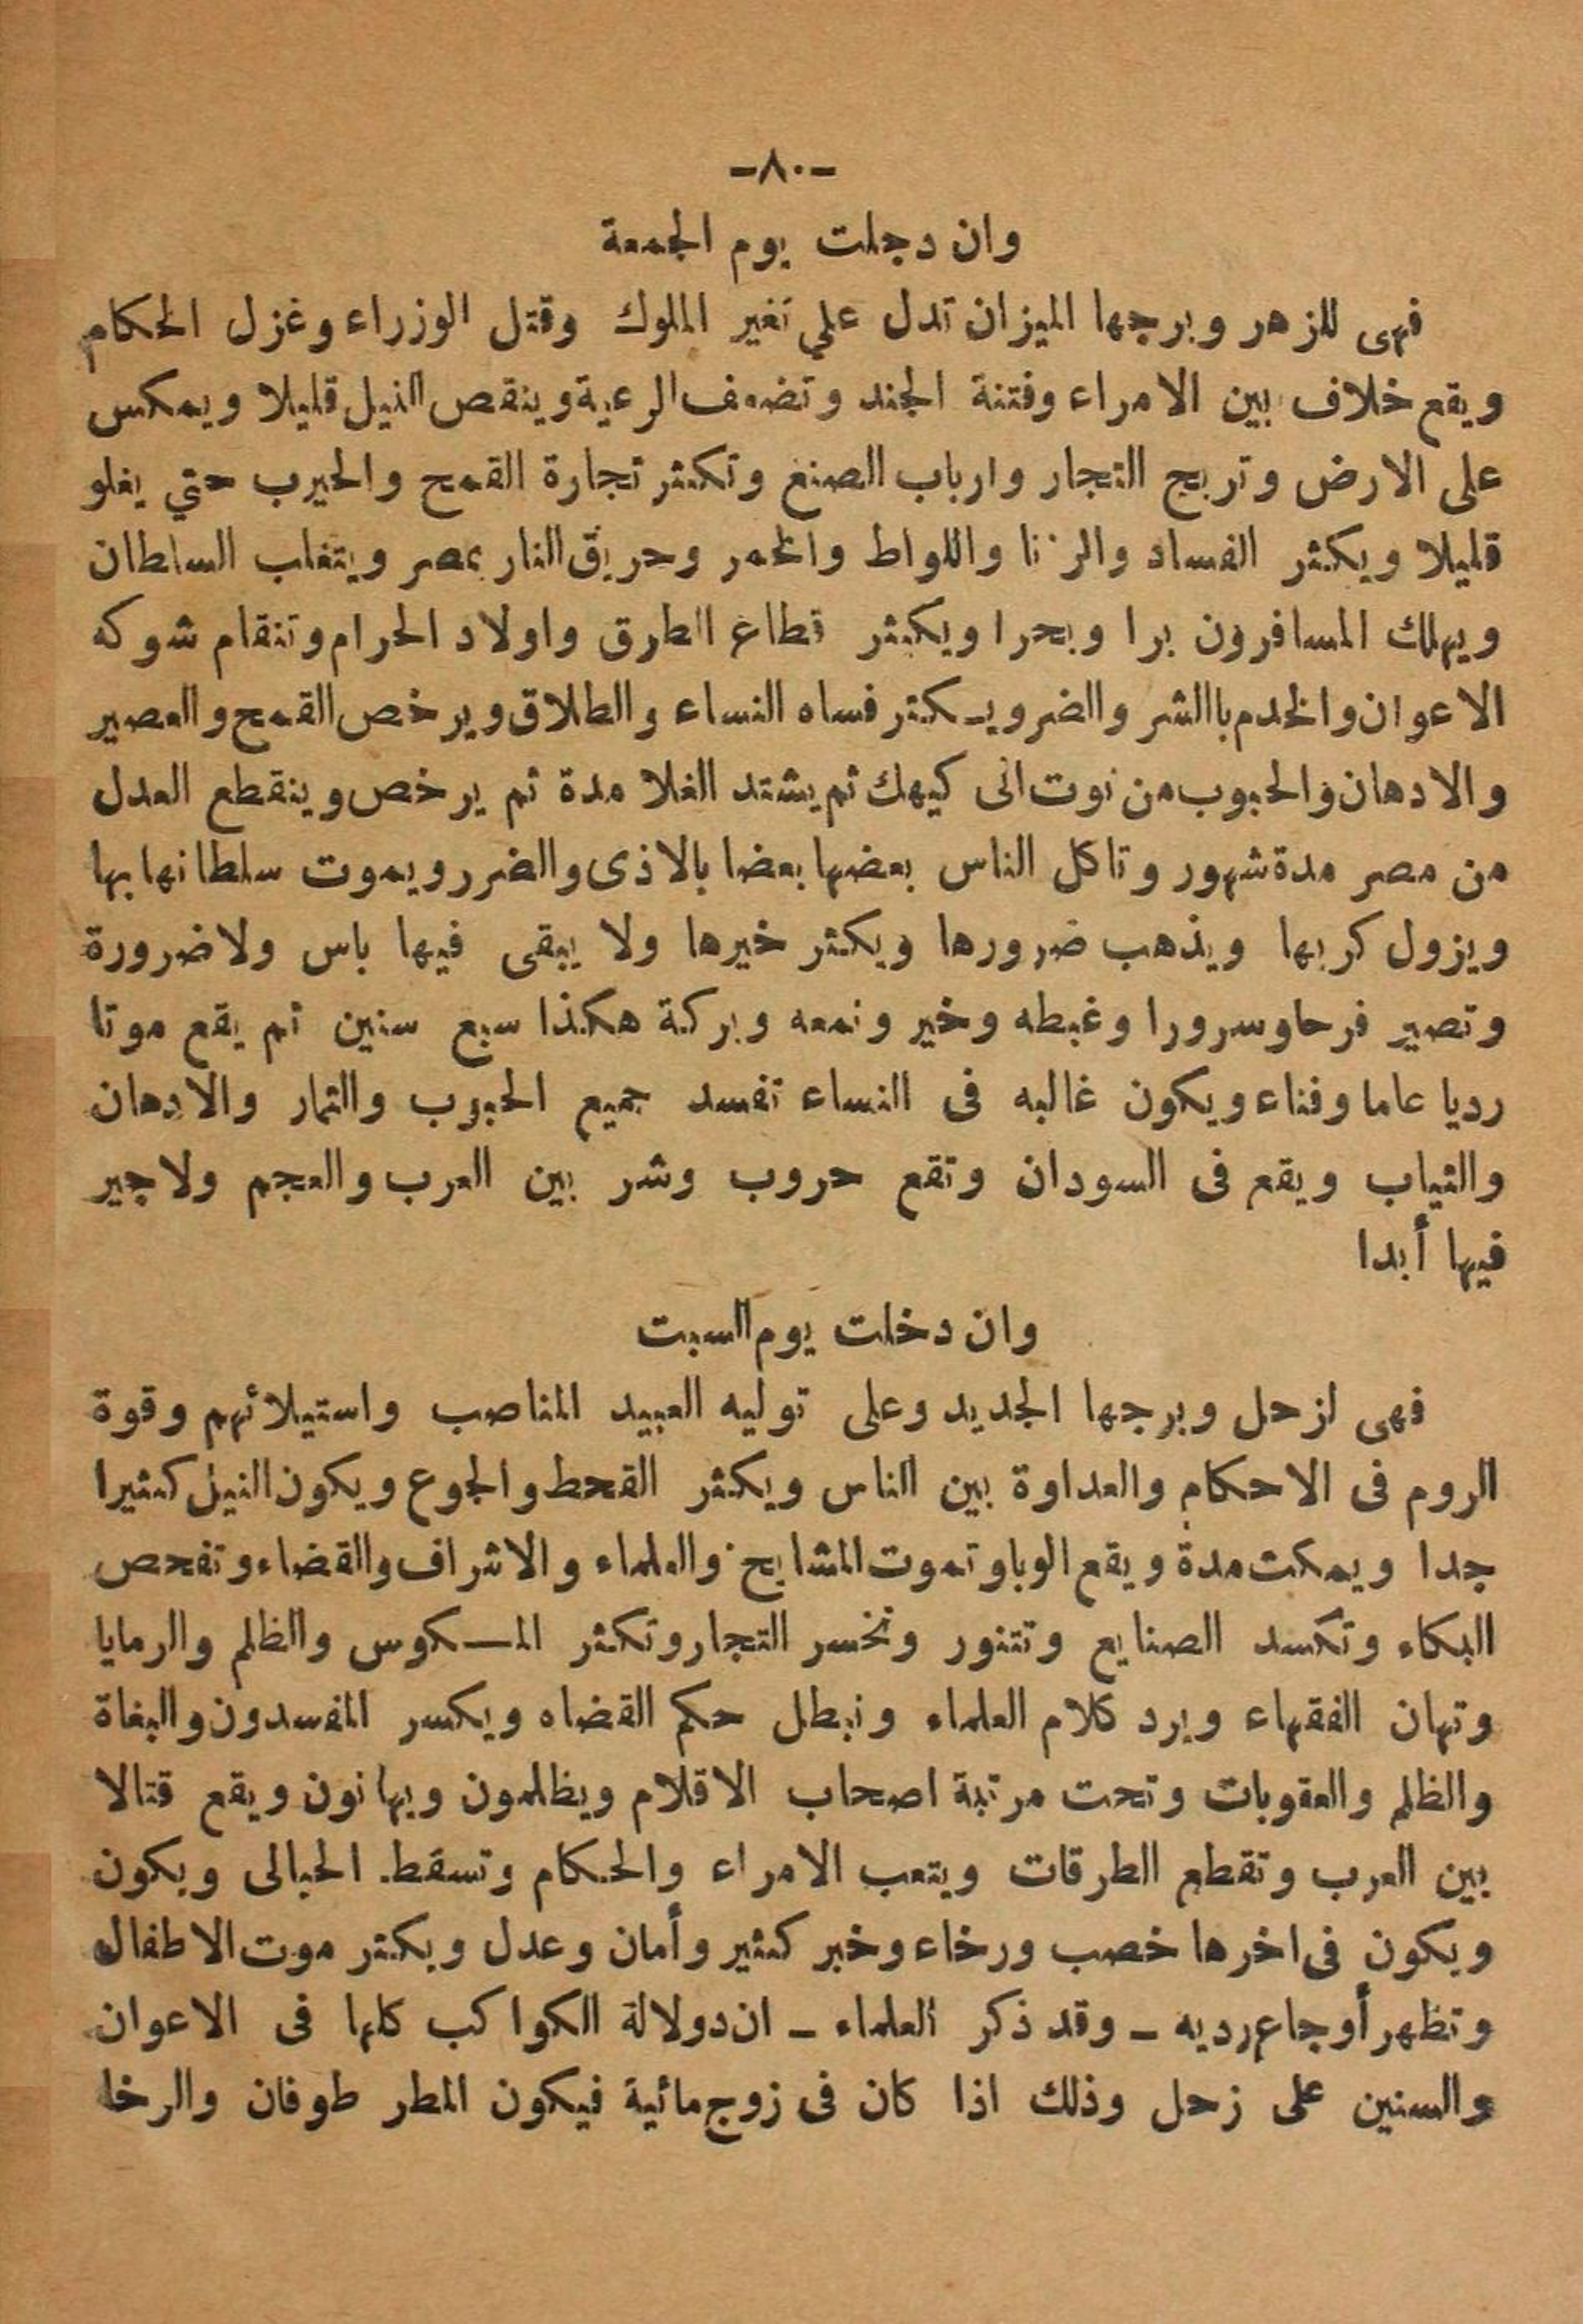 -٨٠-
وان دجلت يوم الجمعة
فهى للزهر وبرجها الميزان تدل علي تغير الملوك وقتل الوزراء وغزل الحكام
ويقع خلاف بين الامراء وفتنة الجند وتضعف الرعية وينقص النيل قليلا ويمكس
على الارض وتربح التجار وارباب الصنع وتكثر تجارة القمح والحيرب حتي يغلو
قليلا ويكثر الفساد والزنا واللواط والخمر وحريق النار بمصر ويتغلب السلطان
ويهلك المسافرون برا وبحرا ويكثر قطاع الطرق واولاد الحرام وتنقام شوكه
الاعوان والخدم باالشر والضر ويـكثر فساه النساء والطلاق ويرخص القمح والعصير
والادهان والحبوب من نوت الى كيهك ثم يشتد الغلا مدة ثم يرخص وينقطع العدل
من مصر مدة شهور وتاكل الناس بعضها بعضا بالاذى والضرر ويموت سلطانها بها
ويزول كربها ويذهب ضرورها ويكثر خيرها ولا يبقى فيها باس ولا ضرورة
وتصير فرحا وسرورا وغبطه وخير ونعمه وبركة هكذا سبع سنين ثم يقع موتا
رديا عاما وفناء ويكون غالبه فى النساء تفسد جميع الحبوب والثمار والادهان
والثياب ويقع فى السودان وتقع حروب وشر بين العرب والعجم ولا جير
فيها أبدا
وان دخلت يوم السبت
فهى لزحل وبرجها الجديد وعلى توليه العبيد المناصب واستيلائهم وقوة
الروم فى الاحكام والعداوة بين الناس ويكثر القحط والجوع ويكون النيل كثيرا
جدا ويمكت مدة ويقع الوبا وتموت المشايخ والعلماء والاشراف والقضاء وتفحص
البكاء وتكسد الصنايع وتتنور وتخسر التجار وتكثر المـكوس والظلم والرمايا
وتهان الفقهاء ويرد كلام العلماء ونبطل حكم القضاه ويكسر المفسدون والبغاة
والظلم والعقوبات وتحت مرتبة اصحاب الاقلام ويظلمون ويهانون ويقع قتالا
بين العرب وتقطع الطرقات ويتعب الامراء والحكام وتسقط الحبالى ويكون
ويكون فى اخرها خصب ورخاء وخبر كثير وأمان وعدل ويكثر موت الاطفال
وتظهر أوجاع رديه – وقد ذكر العلماء – ان دولالة الكواكب كلها فى الاعوان
والسنين على زحل وذلك اذا كان فى زوج مائية فيكون المطر طوفان والرخا